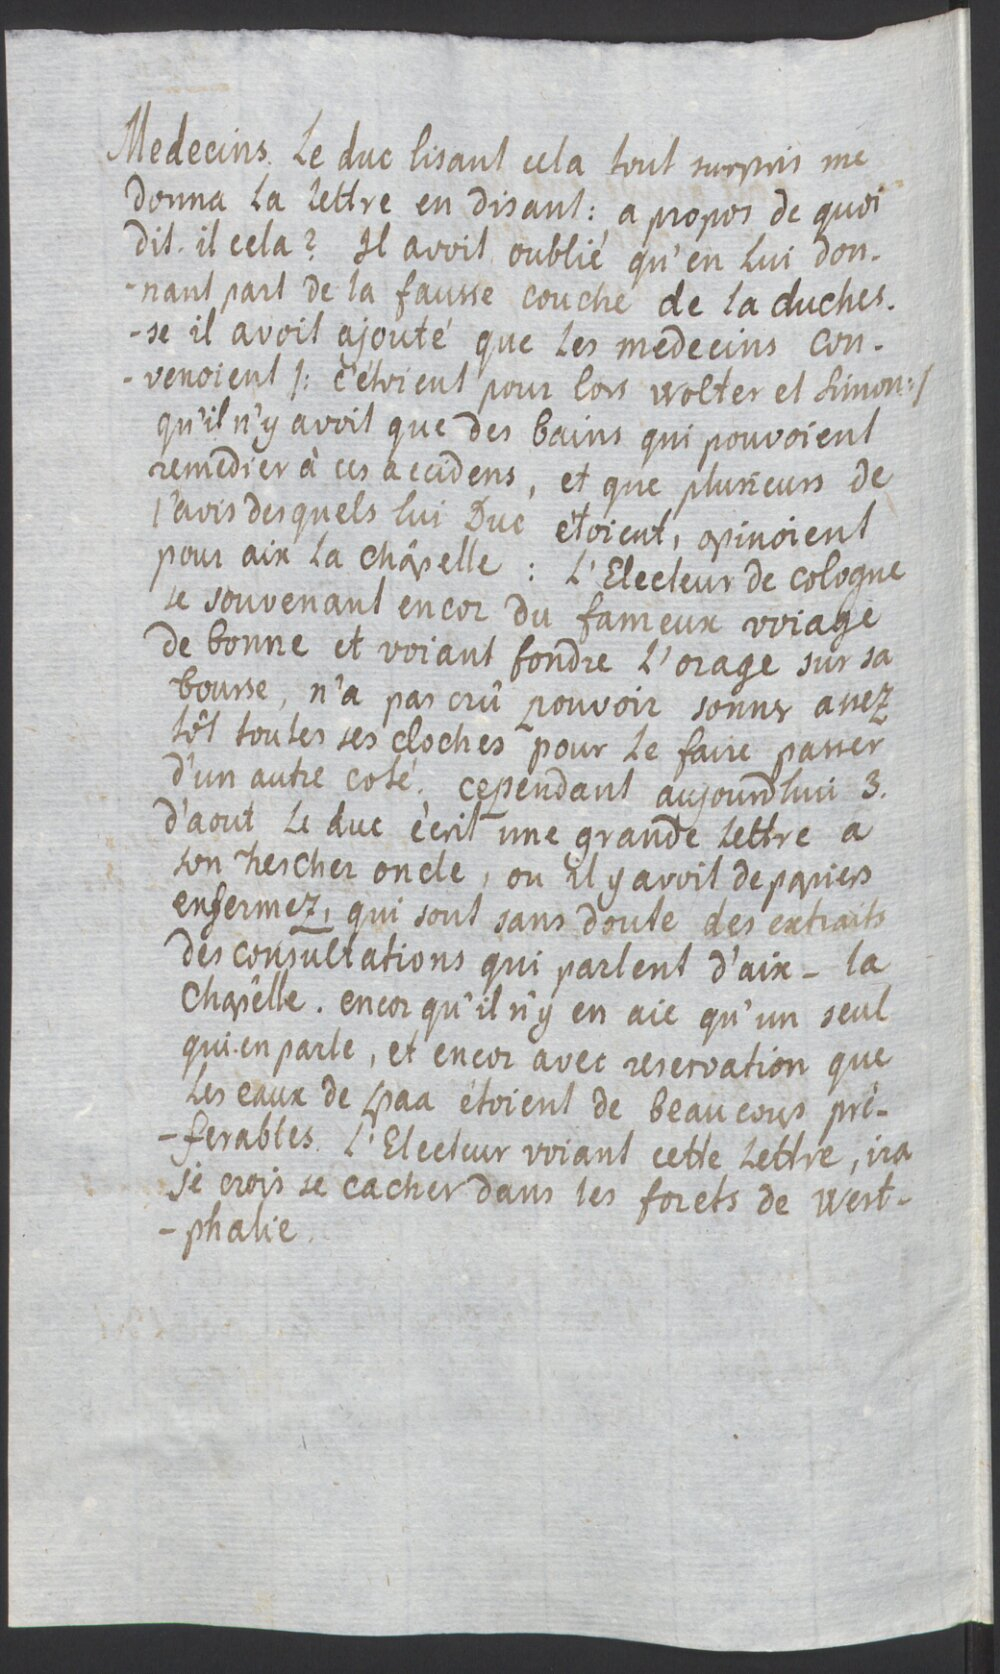 Medecins. Le duc lisant cela tout surpris me
donna La Lettre en disant: a propos de quoi
dit-il cela? Il avoit oublié qu'en Lui don-
-nant part de la fausse couche de la duches-
-se il avoit ajouté que Les medecins con-
-venoient /: c'étoient pour lors Wolter et Simon:/
qu'il n'y avoit que des bains qui pouvoient
remedier à ces accidens, et que plusieurs de
l'avis desquels lui Duc étoient, opinoient
pour aix La châpelle : L'Electeur de Cologne
se souvenant encor du fameux voiage
de bonne et voiant fondre L'orage sur sa
bourse, n'a pas crû pouvoir sonner assez
tôt toutes ses cloches pour Le faire passer
d'un autre coté. cependant aujourdhui 3.
d'aout Le duc écrit une grande Lettre a
son trescher oncle, ou il y avoit de papiers
enfermez, qui sont sans doute des extraits
des consultations qui parlent d'aix-la
Chapêlle. encor qu'il n'y en aie qu'un seul
qui en parle, et encor avec reservation que
Les eaux de Spaa étoient de beaucoup pré-
-ferables. L'Electeur voiant cette Lettre, ira
je crois se cacher dans les forets de West-
-phalie.